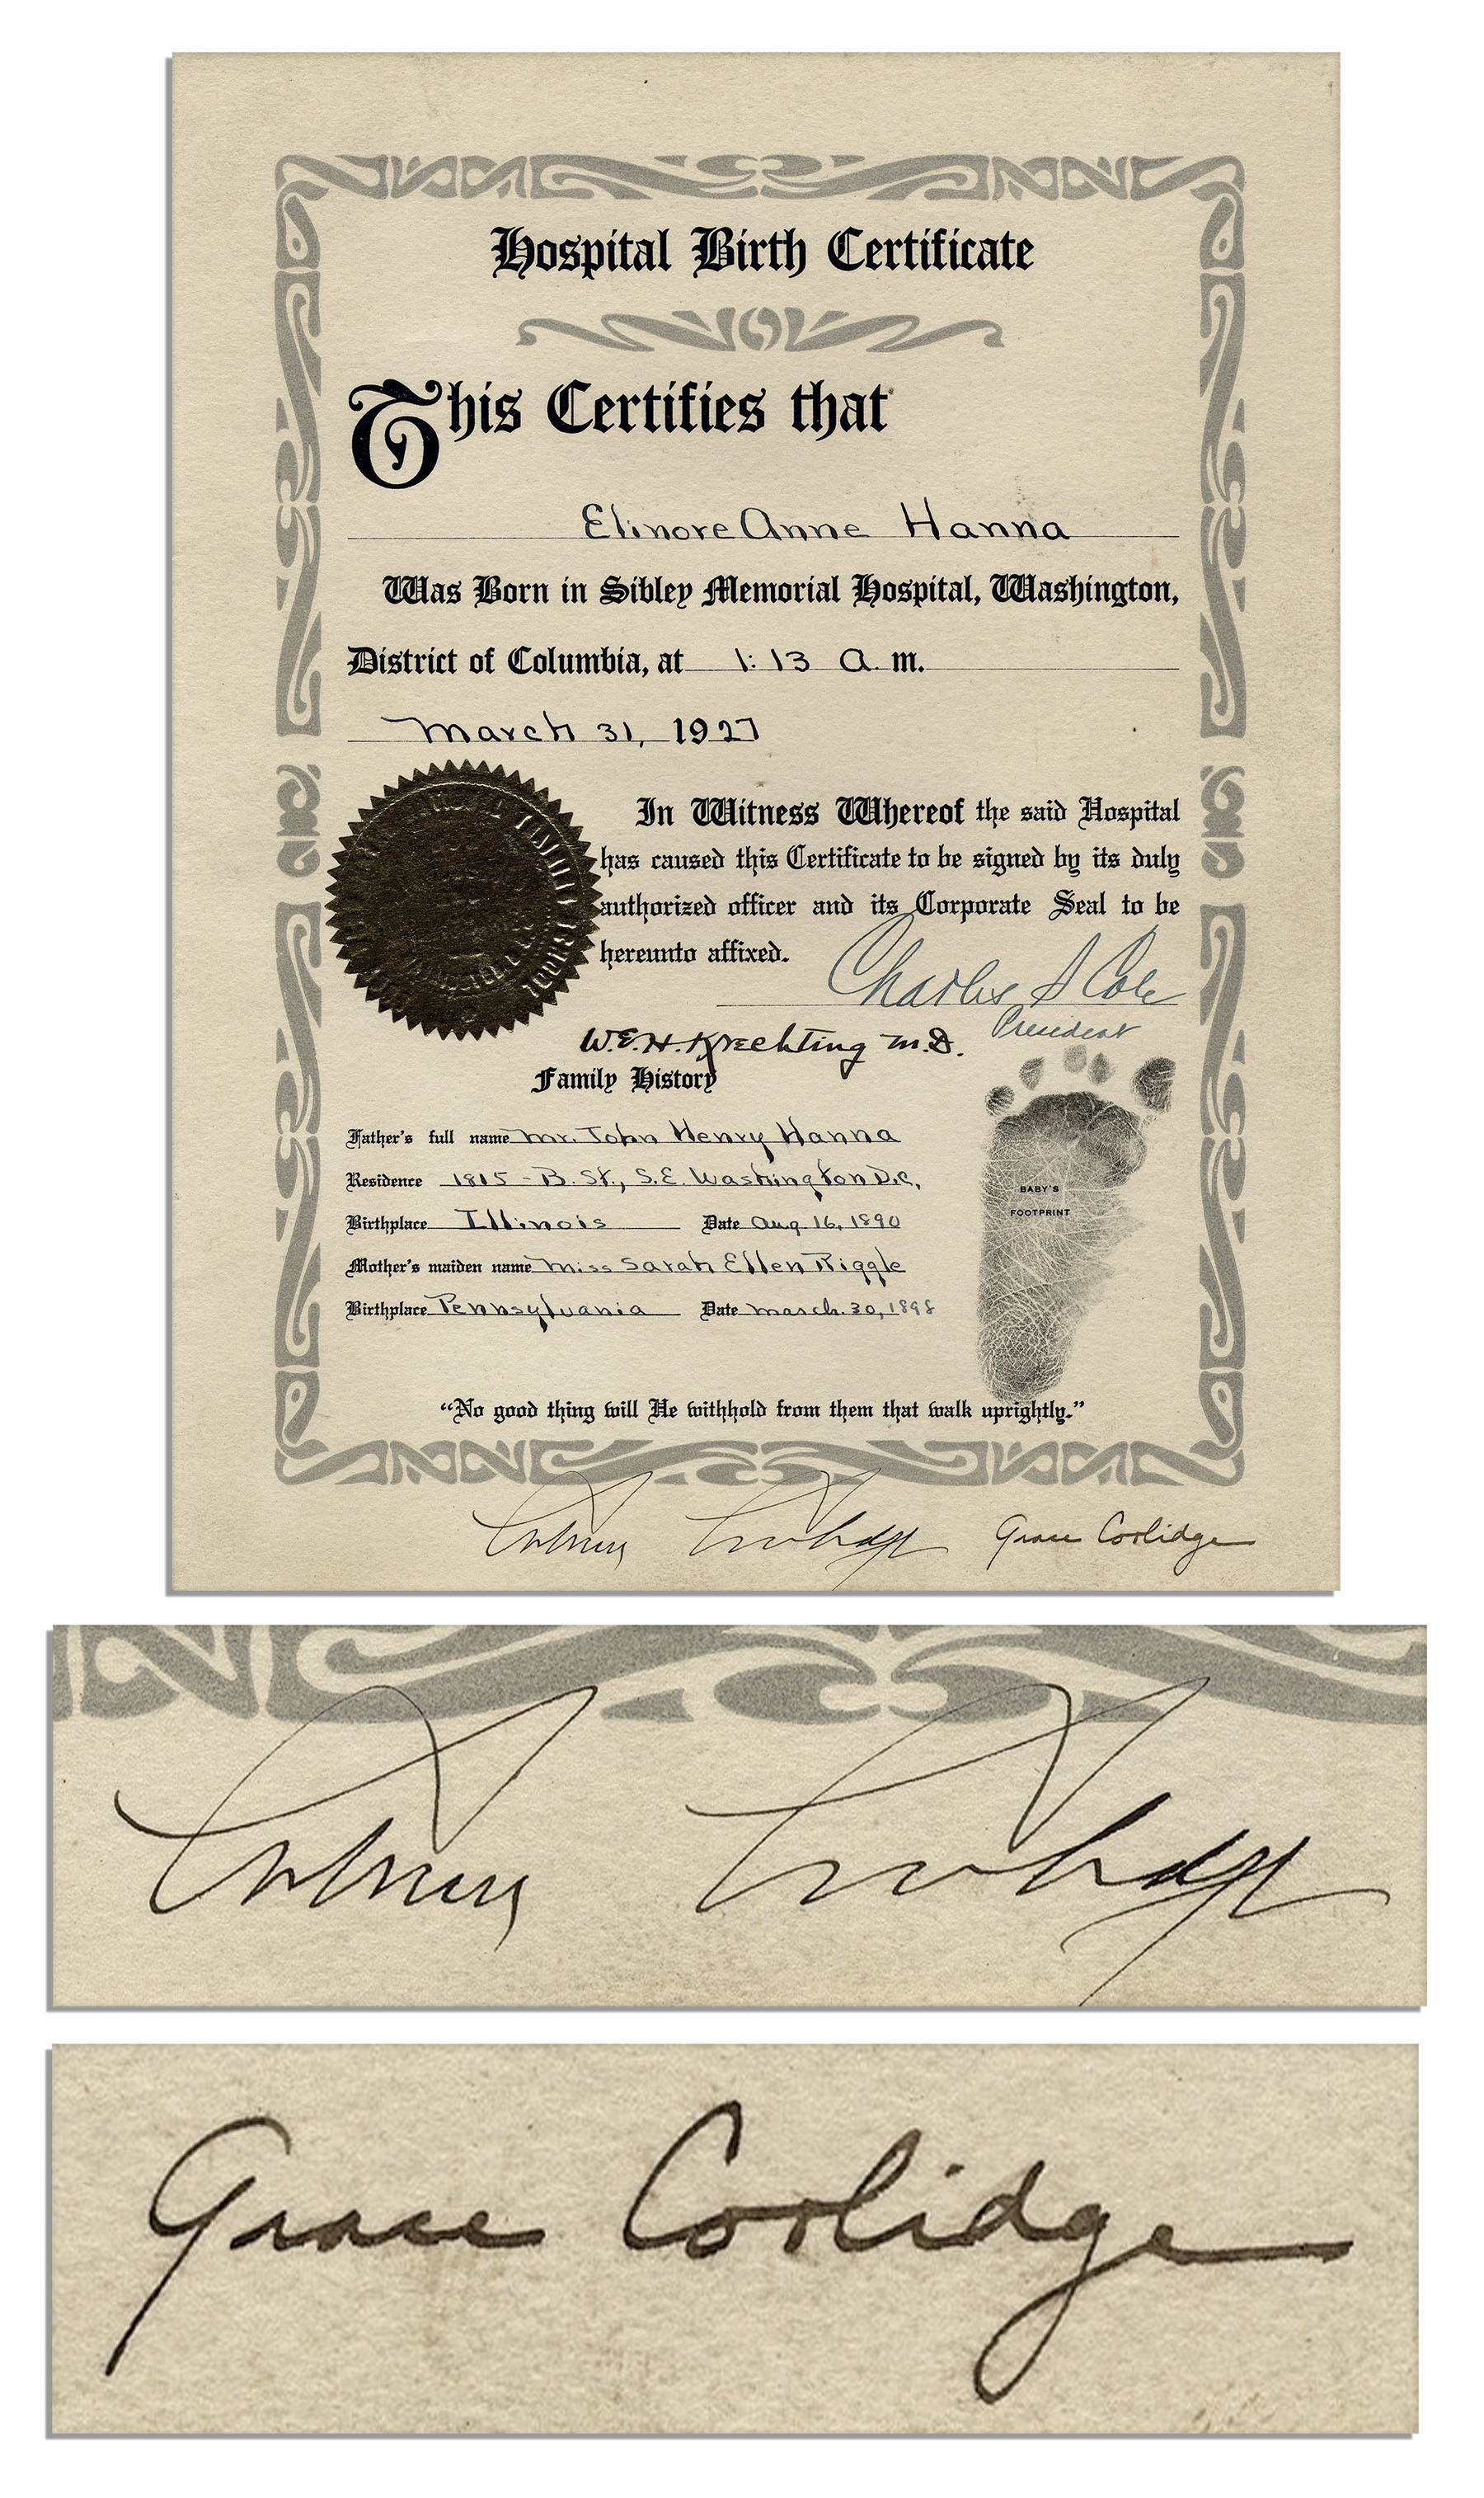 Hospital Birth Certificate
This Certifies that
Elinore Anne Hanna
Was Born in Sibley Memorial Hospital, Washington,
District of Columbia, at 1:13 a. m.
March 31, 1927
In Witness Whereof the said Hospital
has caused this Certificate to be signed by its duly
authorized officer and its Corporate Seal to be
hereunto affixed.
Charles S Cole
President
W.E.H. Krechting M.D.
Family History
Father's full name Mr. John Henry Hanna
Residence 1815 - B. St., S.E. Washington D.C.
Birthplace Illinois Date Aug. 16, 1890
Mother's maiden name Miss Sarah Ellen Riggle
Birthplace Pennsylvania Date March. 30, 1898
BABY'S
FOOTPRINT
“No good thing will He withhold from them that walk uprightly.”
Calvin Coolidge Grace Coolidge
Calvin Coolidge
Grace Coolidge